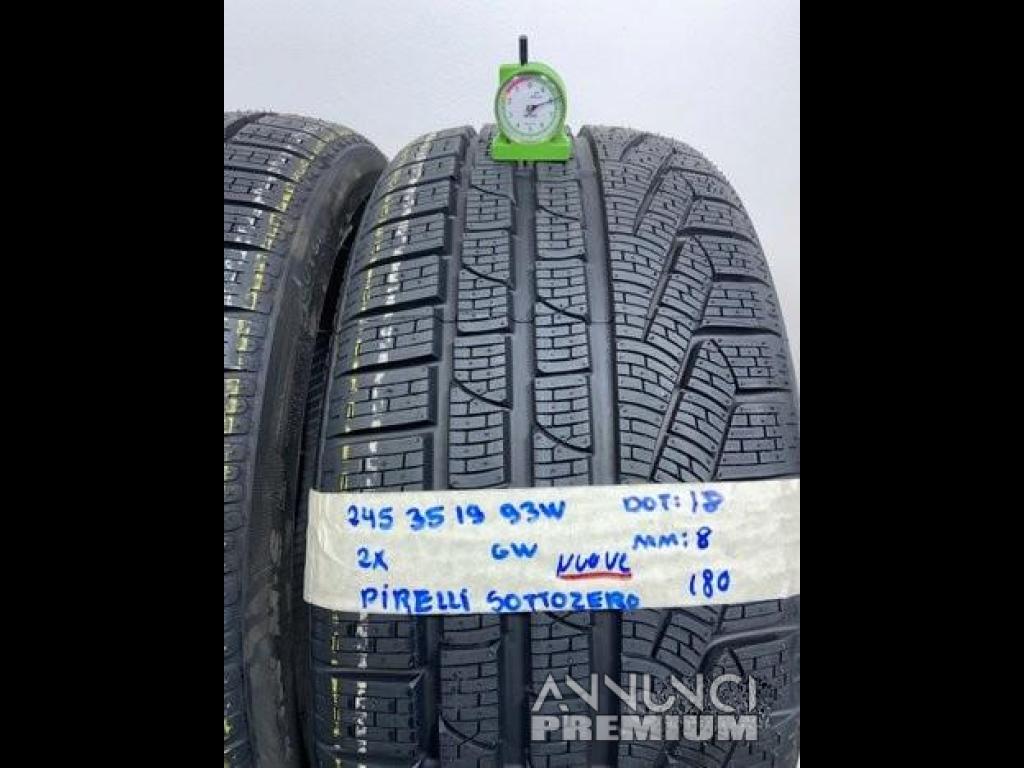 245 35 19 93W DOT: 18
2X GW NUOVE MM: 8
PIRELLI SOTTOZERO 180
ANNUNCI
PREMIUM